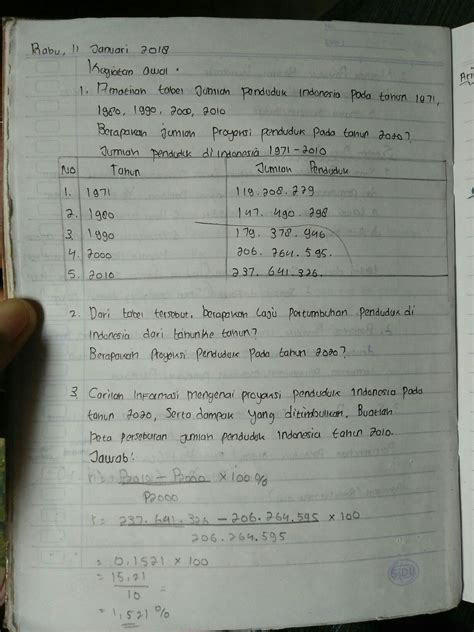 Rabu, 11 Januari 2018
Kegiatan awal.
1. Amatilah tabel Jumlah penduduk Indonesia pada tahun 1971,
1980, 1990, 2000, 2010
Berapakah jumlah Proyeksi penduduk pada tahun 2020?
Jumlah penduduk di indonesia 1971-2010
No Tahun Jumlah Penduduk
1. 1971 119.208.229
2. 1980 147.490.298
3. 1990 179.378.946
4. 2000 206.264.595.
5. 2010 237.641.326.
2. Dari tabel tersebut, berapakah Laju partumbuhan penduduk di
Indonesia dari tahun ke tahun?
Berapakah Proyeksi Penduduk pada tahun 2020?
3. Carilah Informasi mengenai proyeksi penduduk Indonesia pada
tahun 2020, Serta dampak yang ditimbulkan. Buatlah
Peta persebaran jumlah penduduk Indonesia tahun 2010.
Jawab:
r = P2010 - P2000 × 100%
P2000
r = 237.641.326 - 206.264.595 × 100
206.264.595
= 0,1521 × 100
= 15,21 =
10
= 1,521 %
SIDU